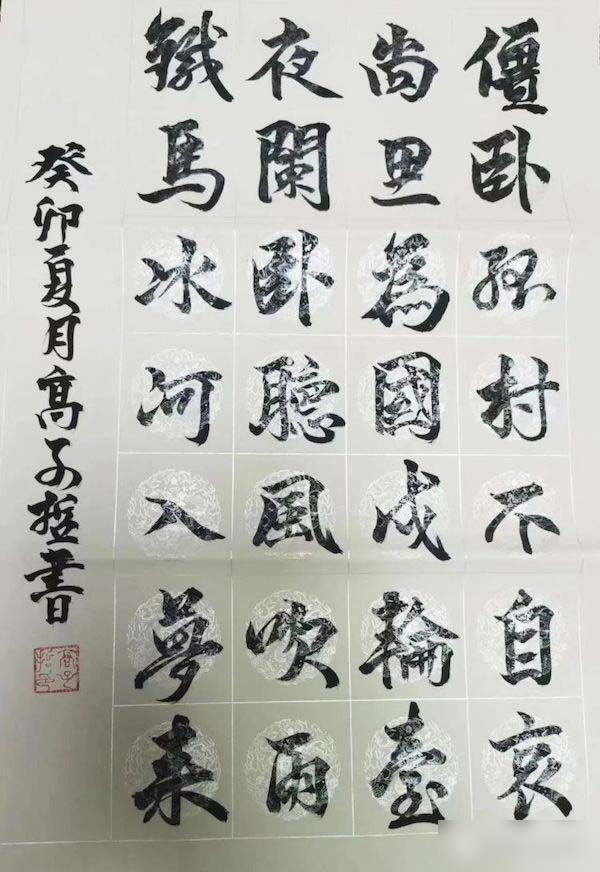 僵卧孤村不自哀
尚思為國戍輪臺
夜闌卧聽風吹雨
鐵馬冰河入夢来
癸卯夏月高子哲書
高子哲印